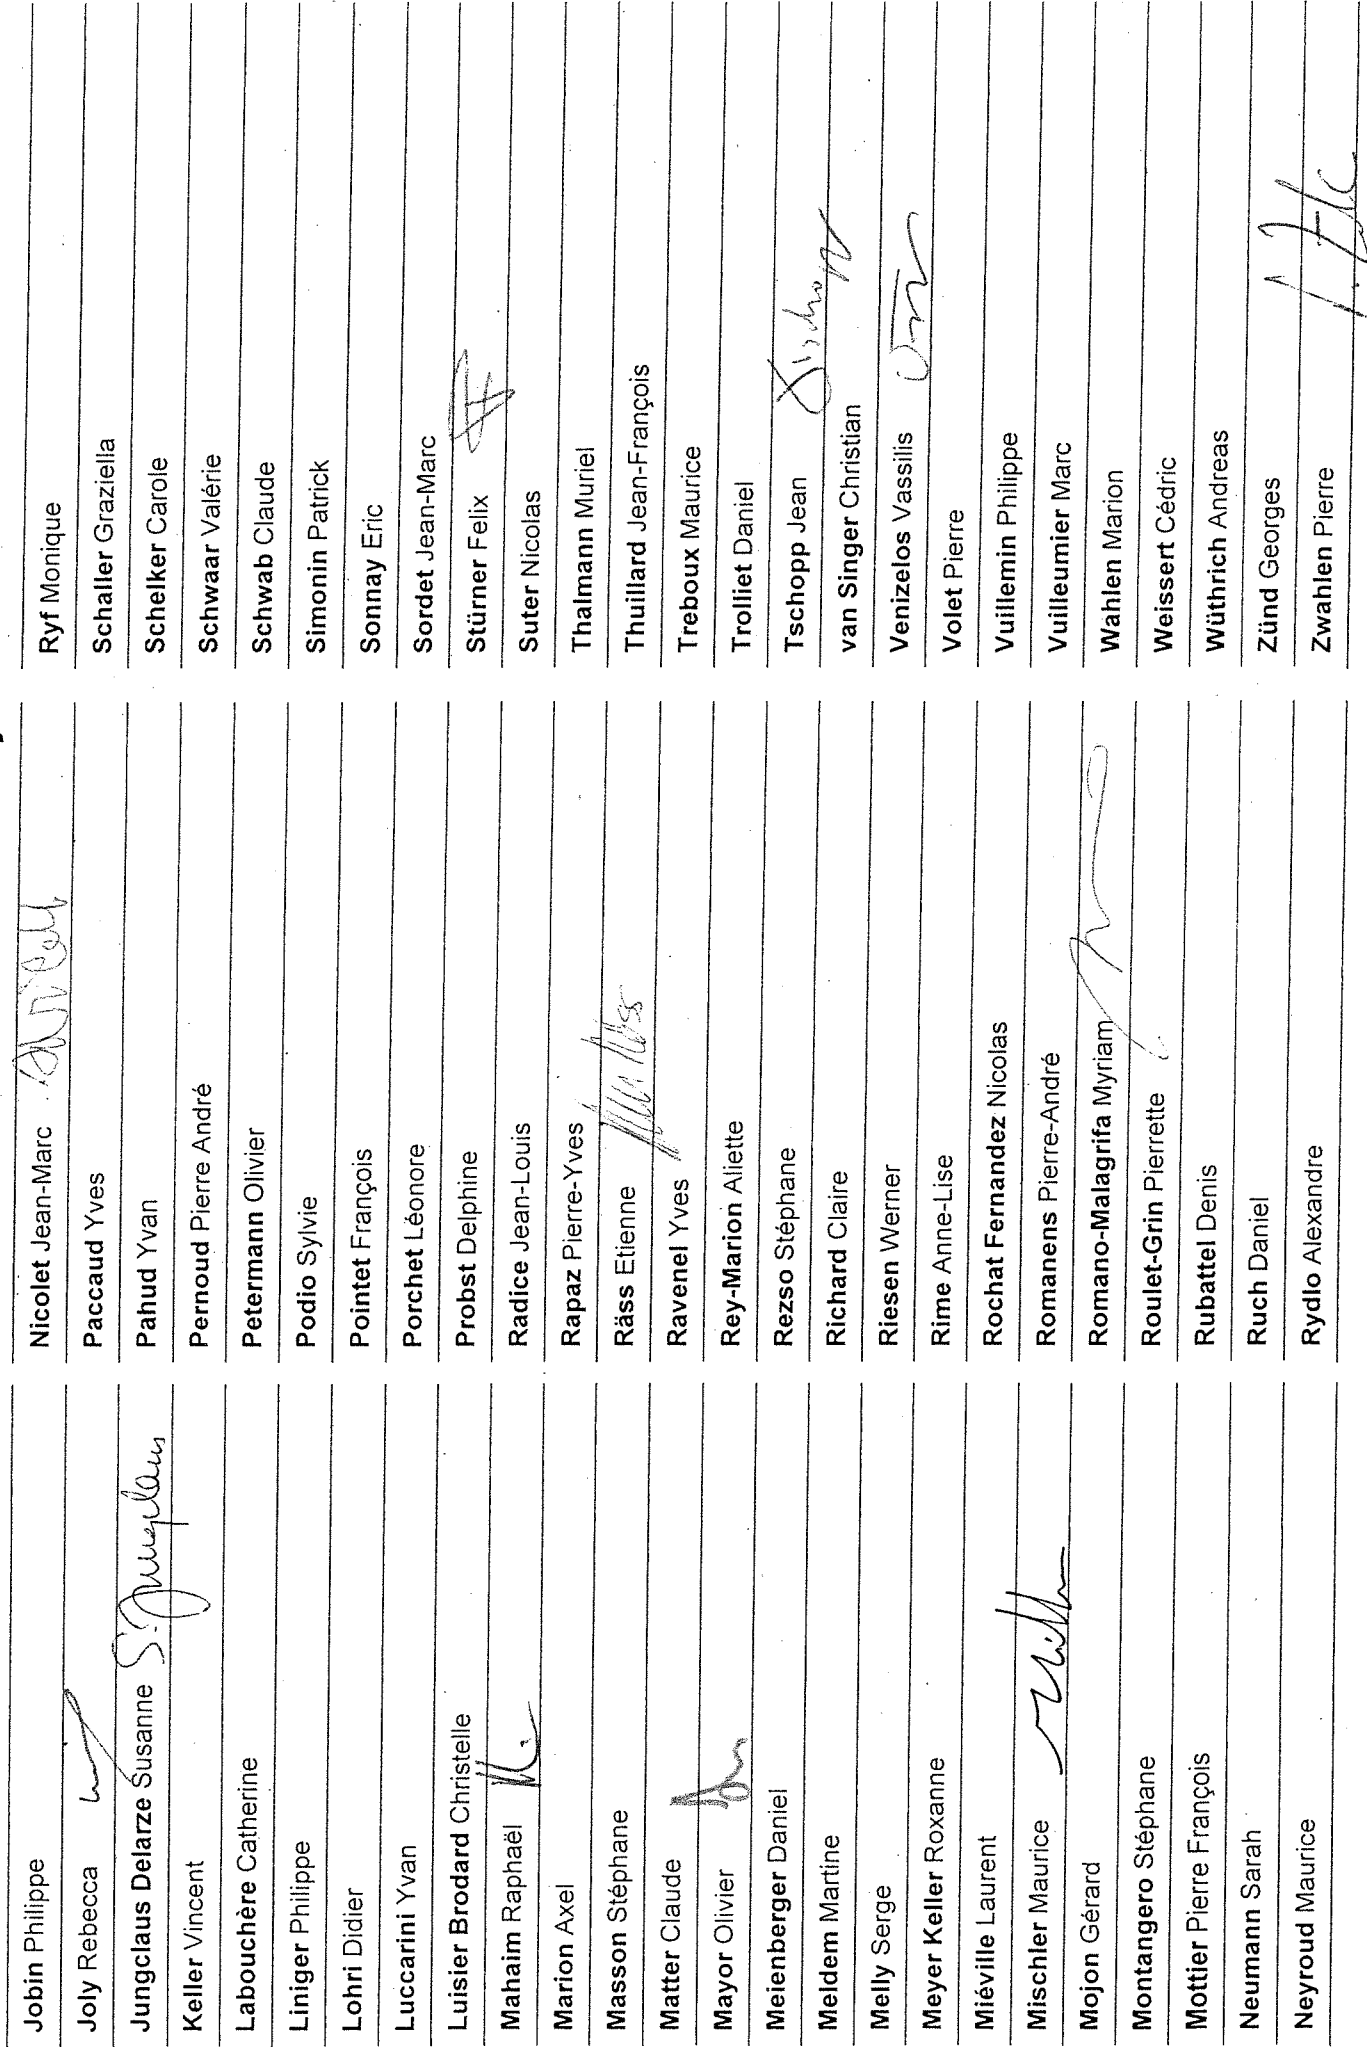 Jobin Philippe
Joly Rebecca
Jungclaus Delarze Susanne S. Jungclaus
Keller Vincent
Labouchère Catherine
Liniger Philippe
Lohri Didier
Luccarini Yvan
Luisier Brodard Christelle
Mahaim Raphaël
Marion Axel
Masson Stéphane
Matter Claude
Mayor Olivier
Meienberger Daniel
Meldem Martine
Melly Serge
Meyer Keller Roxanne
Miéville Laurent
Mischler Maurice
Mojon Gérard
Montangero Stéphane
Mottier Pierre François
Neumann Sarah
Neyroud Maurice
Nicolet Jean-Marc
Paccaud Yves
Pahud Yvan
Pernoud Pierre André
Petermann Olivier
Podio Sylvie
Pointet François
Porchet Léonore
Probst Delphine
Radice Jean-Louis
Rapaz Pierre-Yves
Räss Etienne
Ravenel Yves
Rey-Marion Aliette
Rezso Stéphane
Richard Claire
Riesen Werner
Rime Anne-Lise
Rochat Fernandez Nicolas
Romanens Pierre-André
Romano-Malagrifa Myriam
Roulet-Grin Pierrette
Rubattel Denis
Ruch Daniel
Rydlo Alexandre
Ryf Monique
Schaller Graziella
Schelker Carole
Schwaar Valérie
Schwab Claude
Simonin Patrick
Sonnay Eric
Sordet Jean-Marc
Stürner Felix
Suter Nicolas
Thalmann Muriel
Thuillard Jean-François
Treboux Maurice
Trolliet Daniel
Tschopp Jean Tschopp
van Singer Christian
Venizelos Vassilis
Volet Pierre
Vuillemin Philippe
Vuilleumier Marc
Wahlen Marion
Weissert Cédric
Wüthrich Andreas
Zünd Georges
Zwahlen Pierre